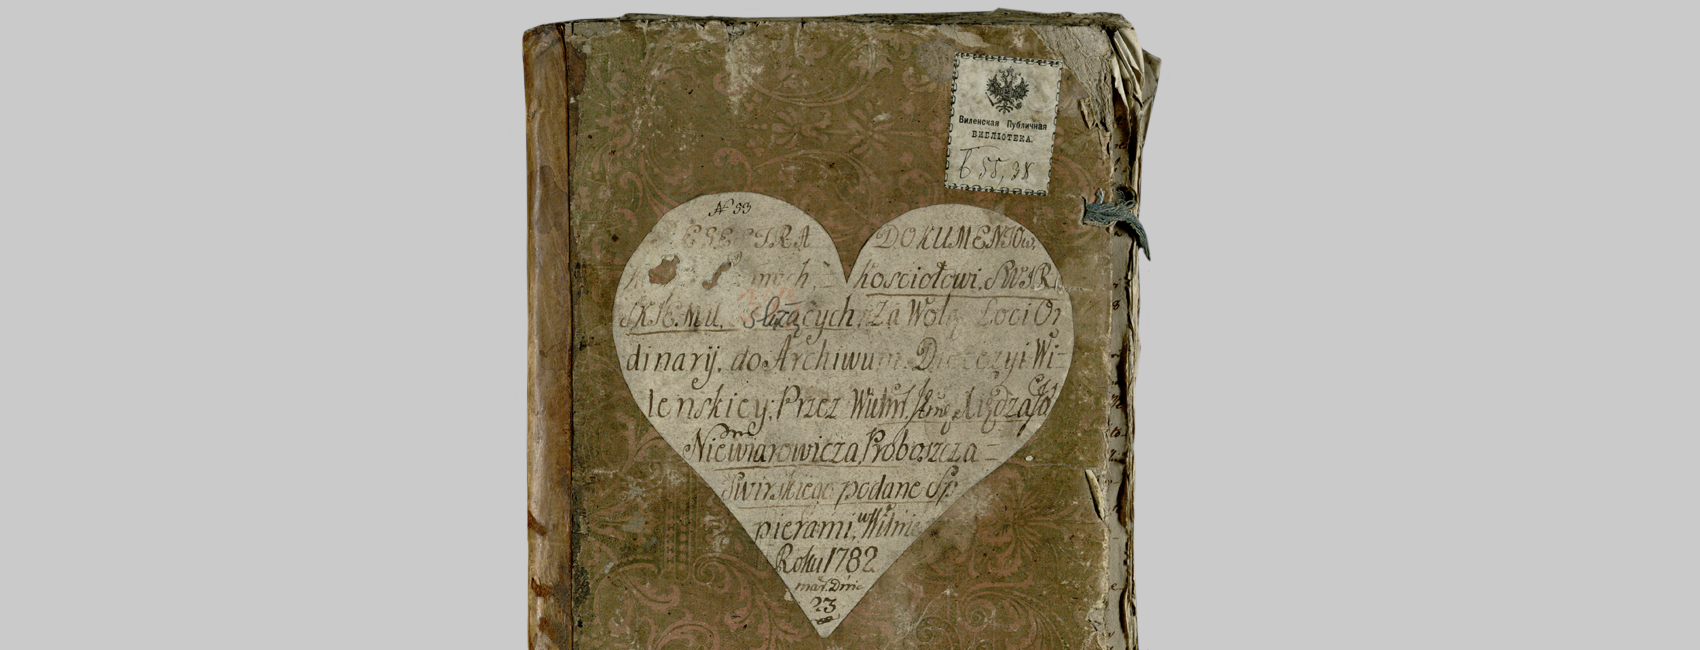 Виленская Публичная
БИБЛІОТЕКА.
Б 55, 38
№ 33
DOKUMENTOW,
kosciołowi, SWIR
SKIEMU, słżących, za Wolą Loci Or
dinarij, do Archiwum Diecezyi Wi-
leńskiey; Przez
Niewiarowicza, Proboszcza =
Swirskiego podane
pierami, w Wilnie
Roku 1782
mar. Dnia
23